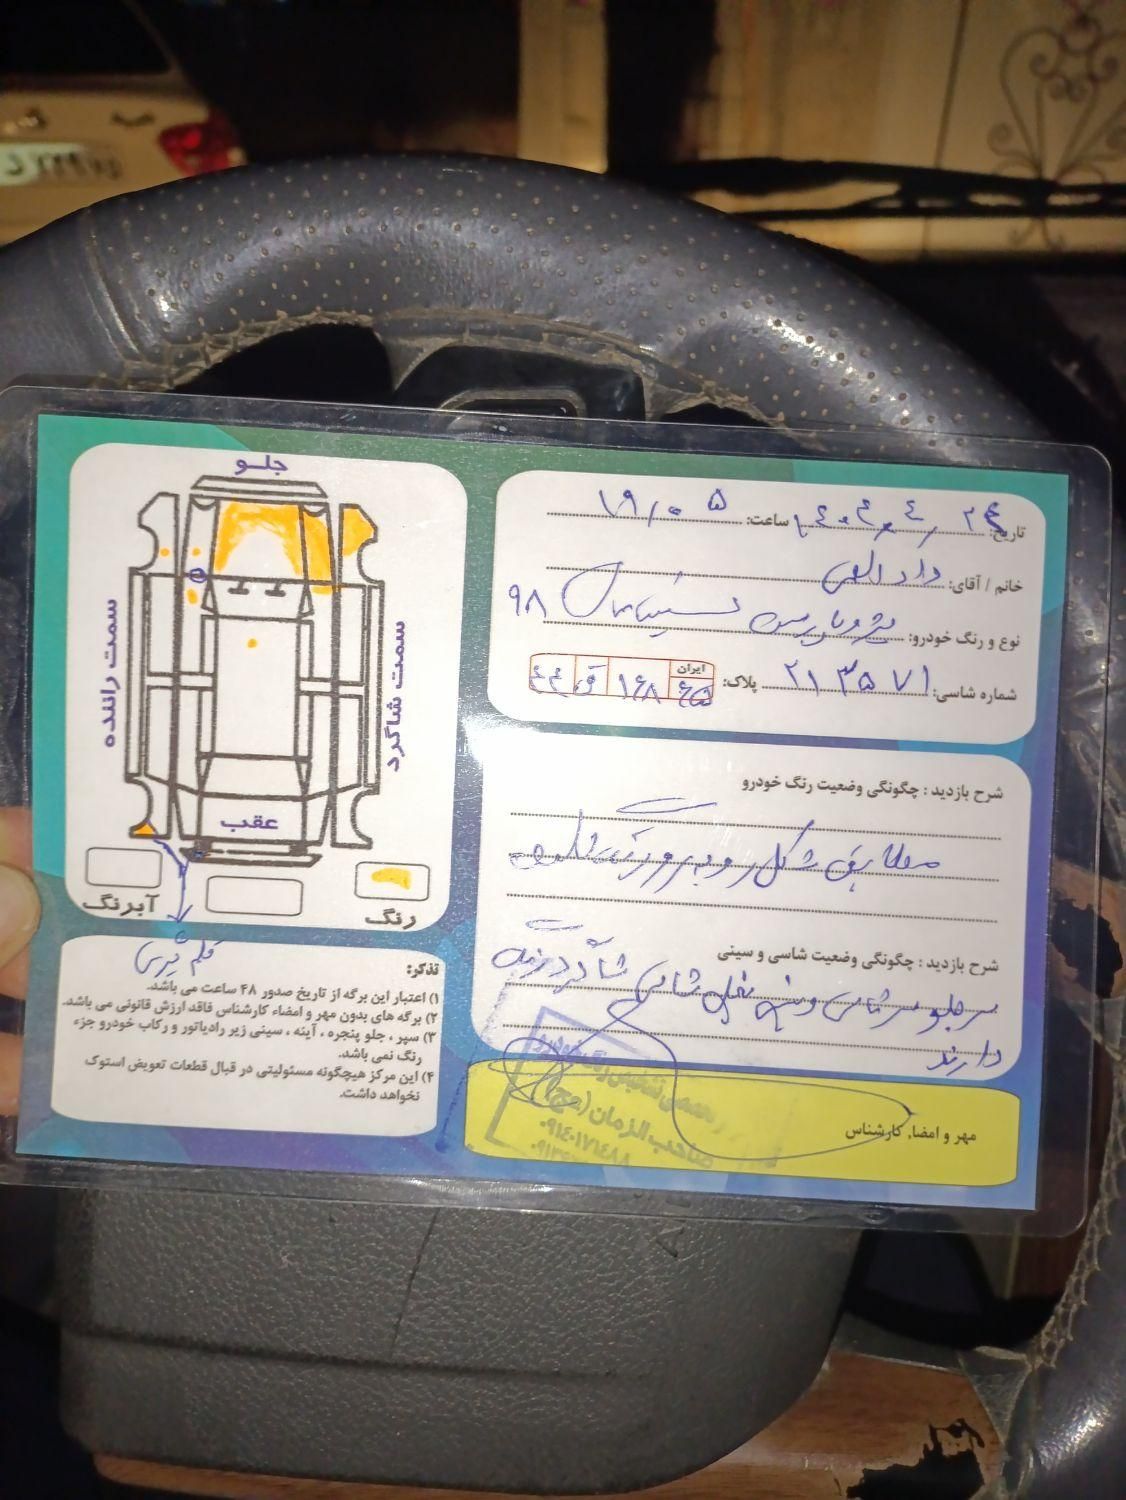 تاریخ: ۱۴۰۴،۴،۲۴ ساعت: ۱۹/۰۵
خانم / آقای: داد الهی
نوع و رنگ خودرو: پژو پارس ۹۸
شماره شاسی: ۲۱۳۵۷۱ پلاک: ایران ۶۵ ۱۶۸ ق ۴۴
شرح بازدید : چگونگی وضعیت رنگ خودرو
مطابق شکل روبرو رنگ
شرح بازدید : چگونگی وضعیت شاسی و سینی
سر جلو سر شاسی و شاگرد
دارند
مهر و امضاء کارشناس
تشخیص رنگ خودرو
صاحب الزمان (عج)
جلو
سمت راننده
سمت شاگرد
عقب
آبرنگ
رنگ
قلم گیری
تذکر:
۱) اعتبار این برگه از تاریخ صدور ۴۸ ساعت می باشد.
۲) برگه های بدون مهر و امضاء کارشناس فاقد ارزش قانونی می باشد.
۳) سپر ، جلو پنجره ، آینه ، سینی زیر رادیاتور و رکاب خودرو جزء
رنگ نمی باشد.
۴) این مرکز هیچگونه مسئولیتی در قبال قطعات تعویض استوک
نخواهد داشت.